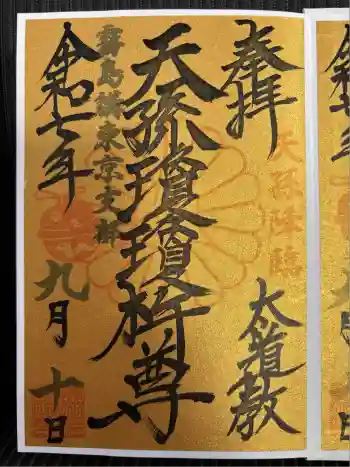 奉拝
太道教
天孫降臨
天孫瓊瓊杵尊
霧島講東京支部
令和七年九月十日